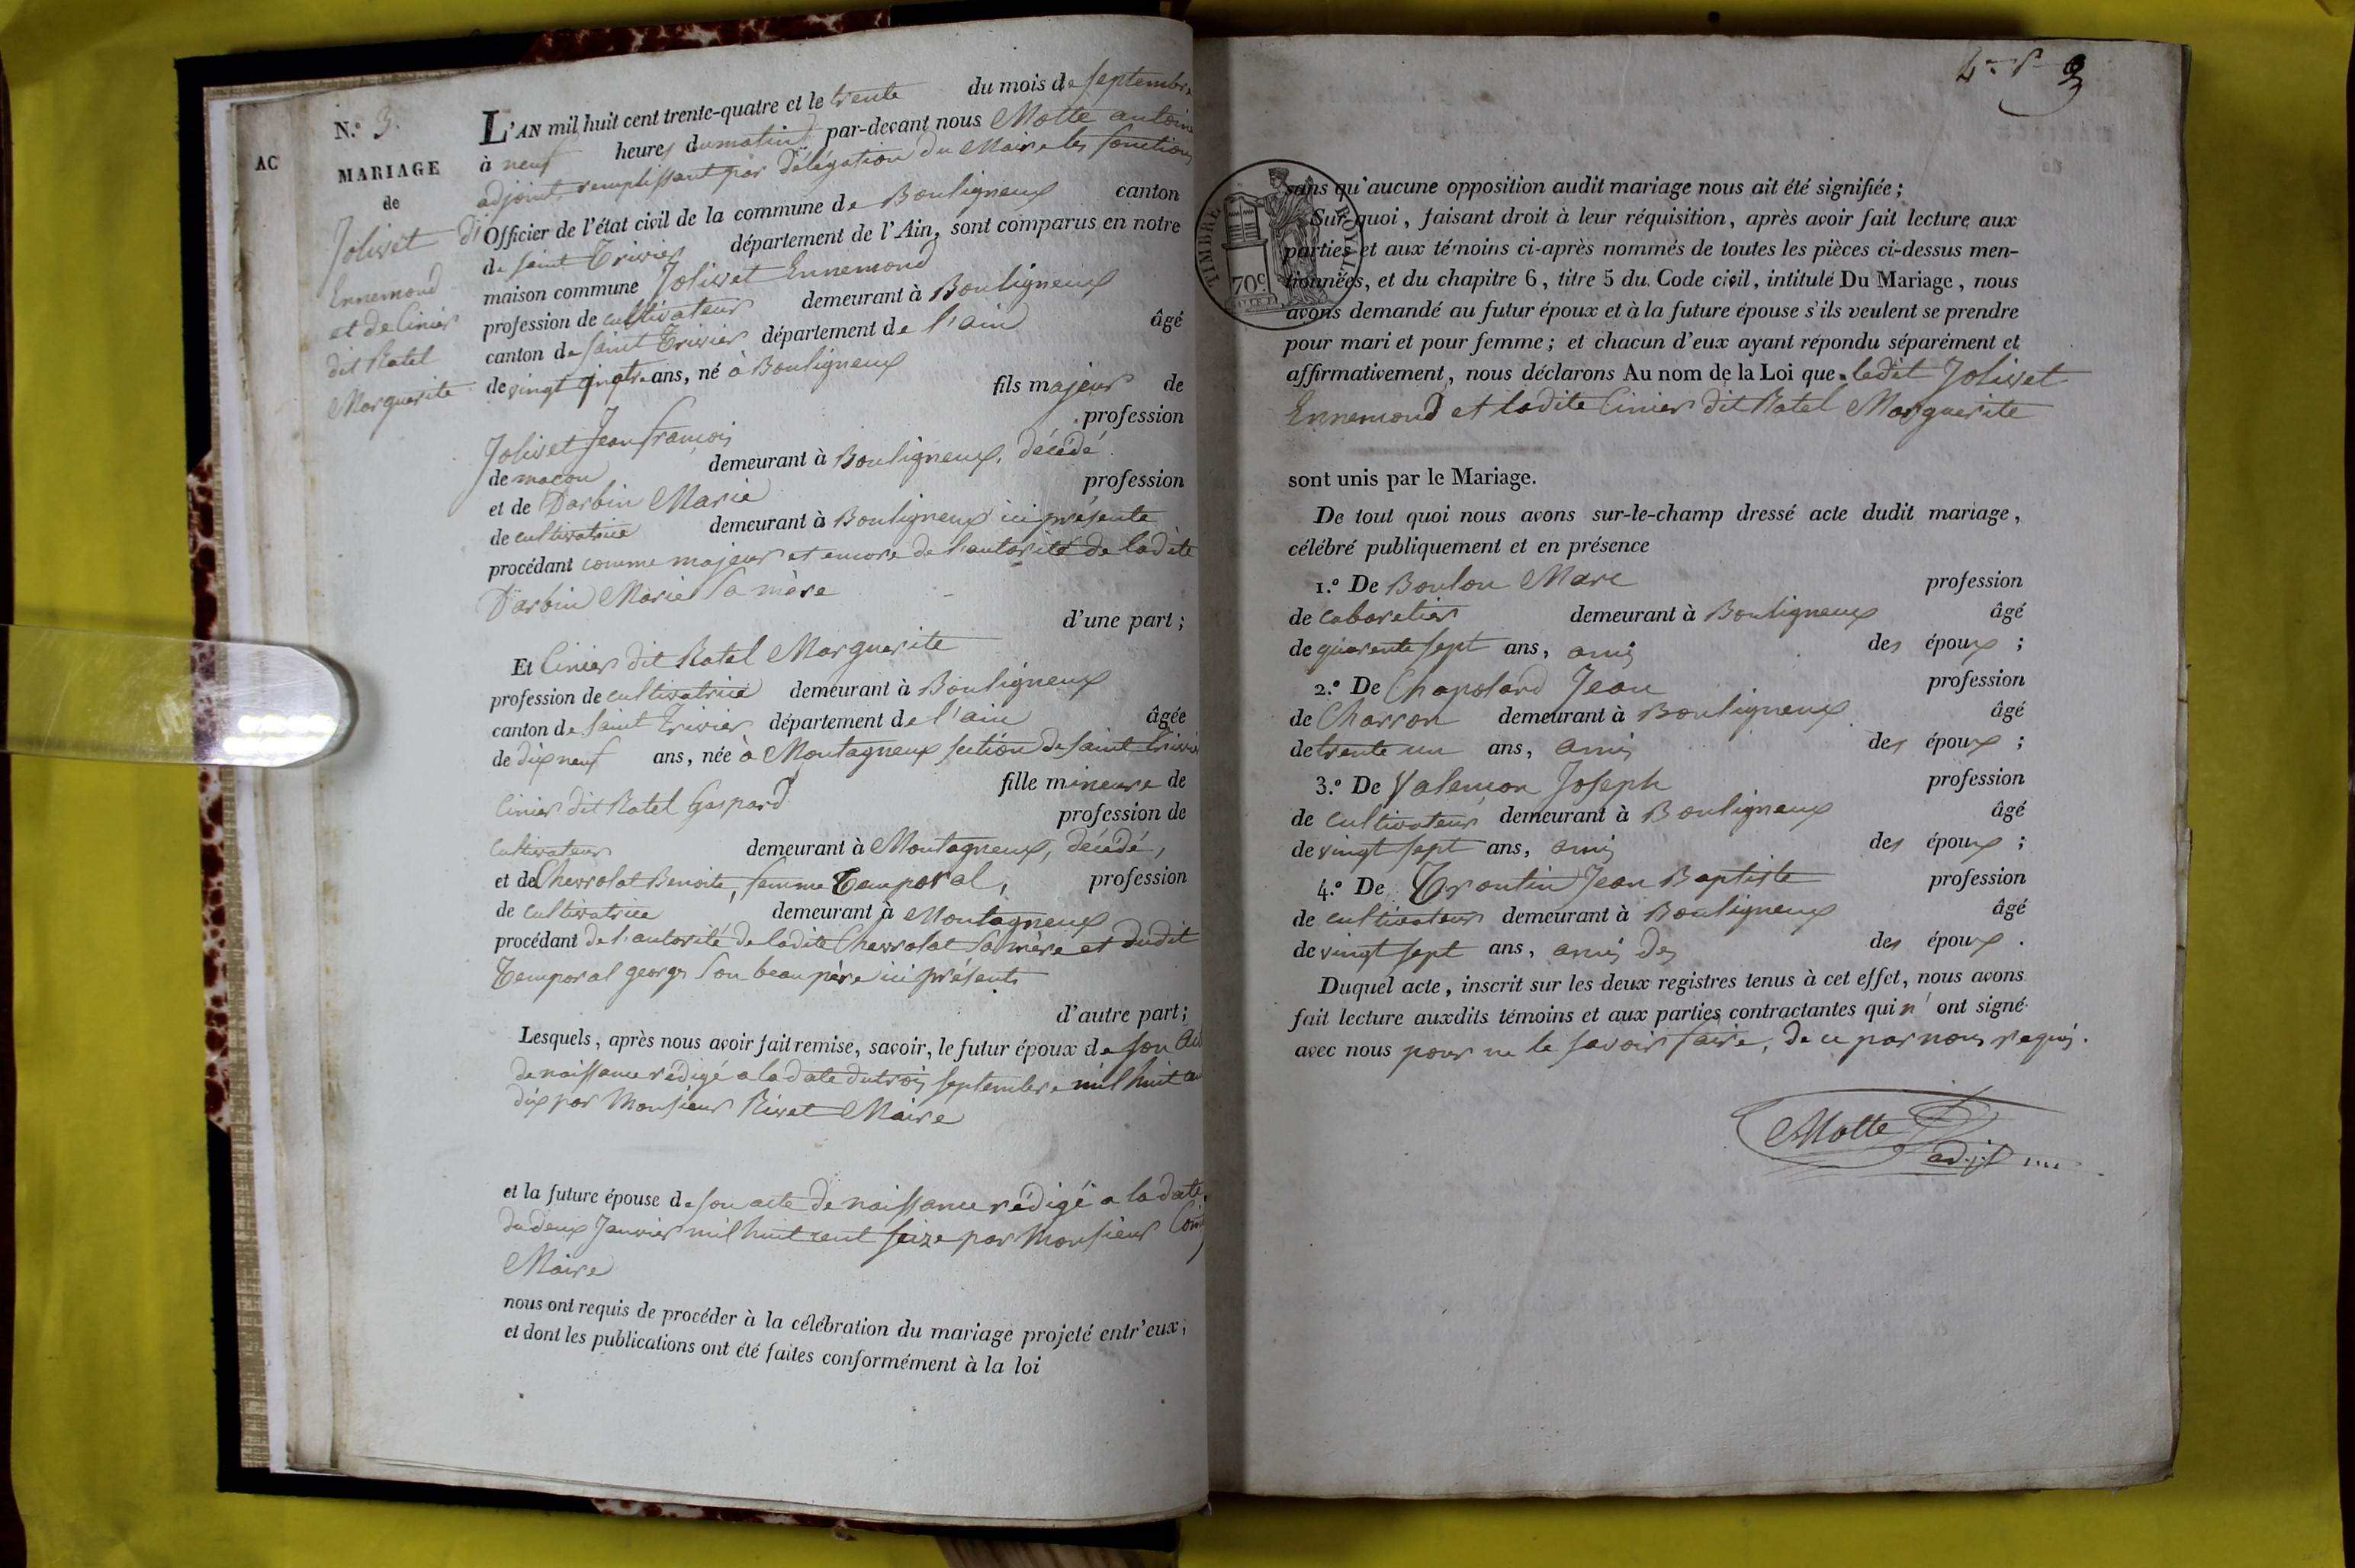 N.º 3.
AC
MARIAGE
de
Jolivet
Ennemond
et de Cinier
dit Ratel
Marguerite
L'AN mil huit cent trente-quatre et le trente du mois de septembre
à neuf heures du matin par-devant nous Motte antoine
adjoint remplissant par délégation du Maire les fonctions
d'Officier de l'état civil de la commune de Bouligneux canton
de saint Trivier département de l'Ain, sont comparus en notre
maison commune Jolivet Ennemond
profession de cultivateur demeurant à Bouligneux
canton de saint Trivier département de l'ain âgé
de vingt quatre ans, né à Bouligneux
fils majeur de
Jolivet Jean françois profession
de macon demeurant à Bouligneux, décédé.
et de Darbin Marie profession
de cultivatrice demeurant à Bouligneux ici présente
procédant comme majeur et encore de l'autorité de ladite
Darbin Marie sa mère
d'une part ;
Et Cinier dit Ratel Marguerite
profession de cultivatrice demeurant à Bouligneux
canton de saint Trivier département de l'ain âgée
de dix neuf ans, née à Montagneux section de saint Trivier
fille mineure de
Cinier dit Ratel Gaspard profession de
cultivateur demeurant à Montagneux, décédé,
et de Chevrolat Benoite, femme Temporal, profession
de cultivatrice demeurant à Montagneux
procédant de l'autorité de ladite Chevrolat sa mère et dudit
Temporal george son beau père ici présents
d'autre part ;
Lesquels, après nous avoir fait remise, savoir, le futur époux de son
de naissance rédigé a la date du trois septembre mil huit
dix par Monsieur Rivet Maire
et la future épouse de son acte de naissance rédigé a la date
du deux Janvier mil huit cent seize par Monsieur
Maire
nous ont requis de procéder à la célébration du mariage projeté entr'eux,
et dont les publications ont été faites conformément à la loi
TIMBRE ROYAL
70c
sans qu'aucune opposition audit mariage nous ait été signifiée ;
Sur quoi, faisant droit à leur réquisition, après avoir fait lecture aux
parties et aux témoins ci-après nommés de toutes les pièces ci-dessus men-
tionnées, et du chapitre 6, titre 5 du Code civil, intitulé Du Mariage, nous
avons demandé au futur époux et à la future épouse s'ils veulent se prendre
pour mari et pour femme ; et chacun d'eux ayant répondu séparément et
affirmativement, nous déclarons Au nom de la Loi que ledit Jolivet
Ennemond et ladite Cinier dit Ratel Marguerite
sont unis par le Mariage.
De tout quoi nous avons sur-le-champ dressé acte dudit mariage,
célébré publiquement et en présence
1.º De Boulon Marc profession
de cabaretier demeurant à Bouligneux âgé
de quarente sept ans, ami des époux ;
2.º De Chapolard Jean profession
de Charron demeurant à Bouligneux âgé
de trente un ans, ami des époux ;
3.º De Valençon Joseph profession
de cultivateur demeurant à Bouligneux âgé
de vingt sept ans, ami des époux ;
4.º De Trontin Jean Baptiste profession
de cultivateur demeurant à Bouligneux âgé
de vingt sept ans, ami des des époux .
Duquel acte, inscrit sur les deux registres tenus à cet effet, nous avons
fait lecture auxdits témoins et aux parties contractantes qui n'ont signé
avec nous pour ne le savoir faire, de ce par nous requis.
Motte
adjt